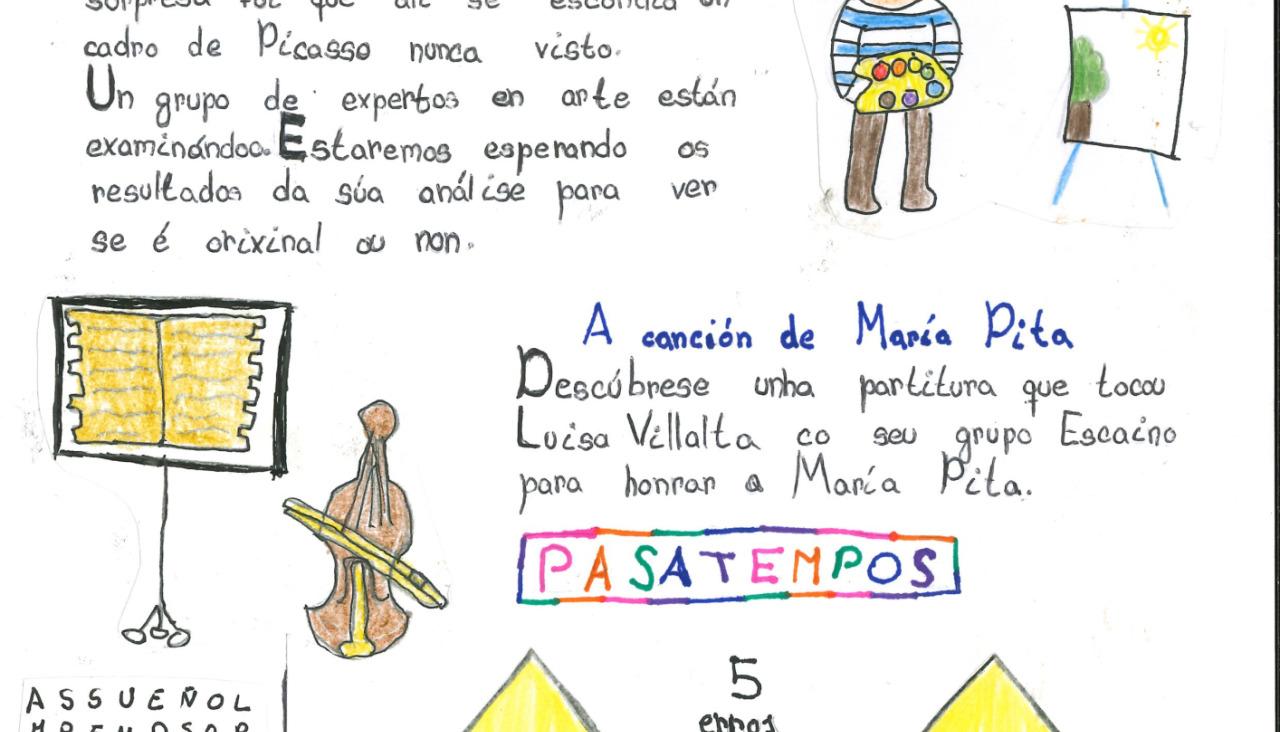 sorpresa foi que alí se escondía un
cadro de Picasso nunca visto.
Un grupo de expertos en arte están
examinándoo. Estaremos esperando os
resultados da súa análise para ver
se é orixinal ou non.
A canción de María Pita
Descúbrese unha partitura que tocou
Luisa Villalta co seu grupo Escaino
para honrar a María Pita.
PASATEMPOS
5
erros
ASSUEÑOL